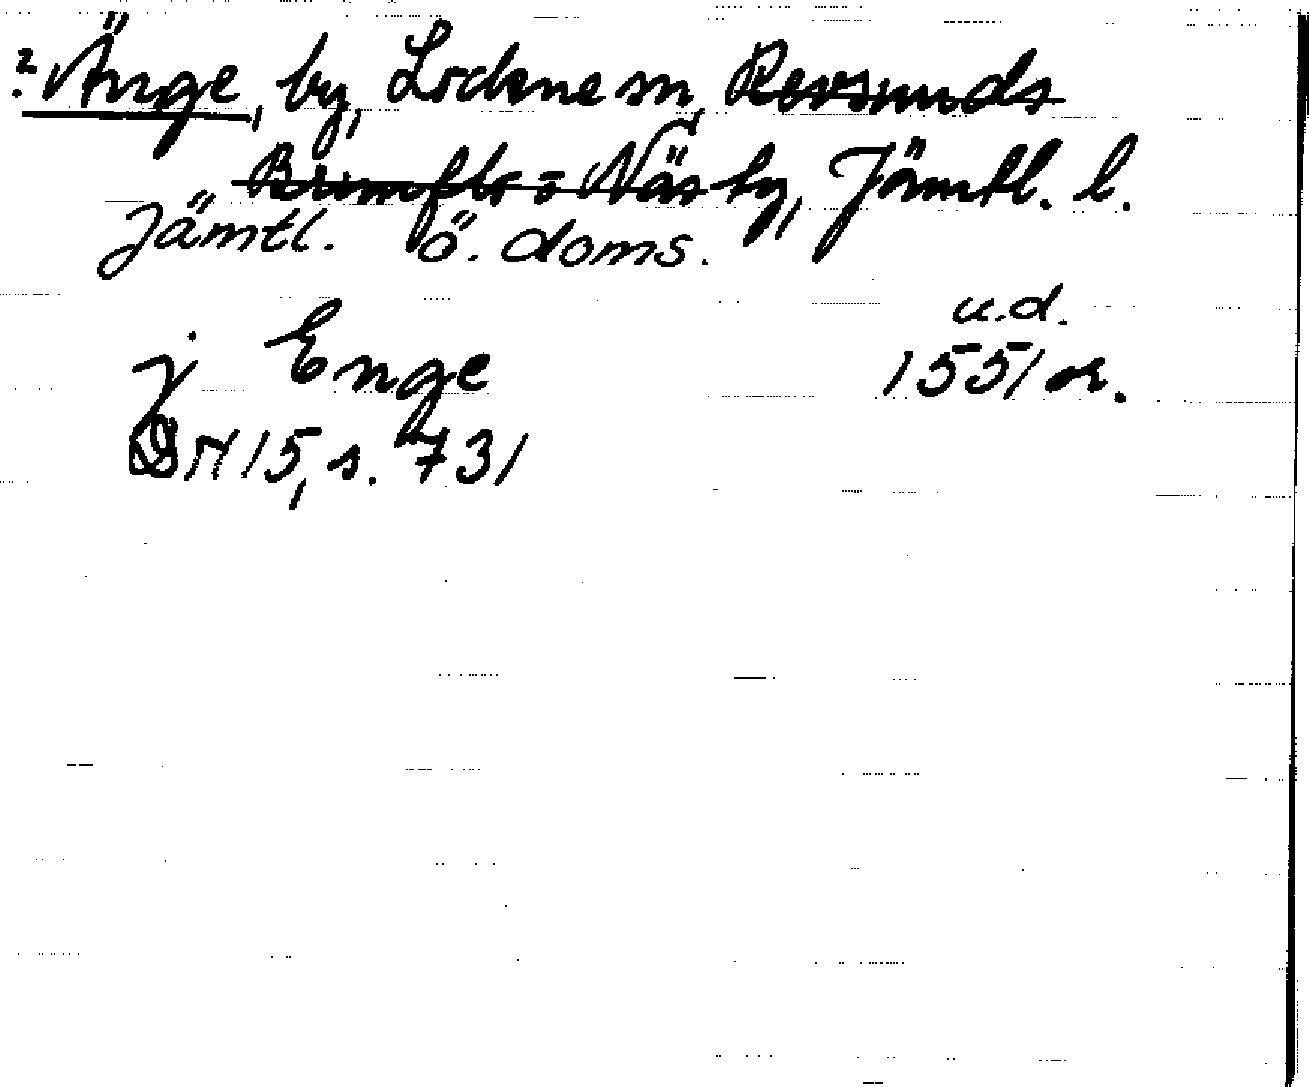 ? Änge, by, Lockne sn, Revsunds
Brunflo o Näs tg, Jämtl. l.
Jämtl. ö. doms.
u.d.
j Enge 1551 or.
DN 15, s. 731